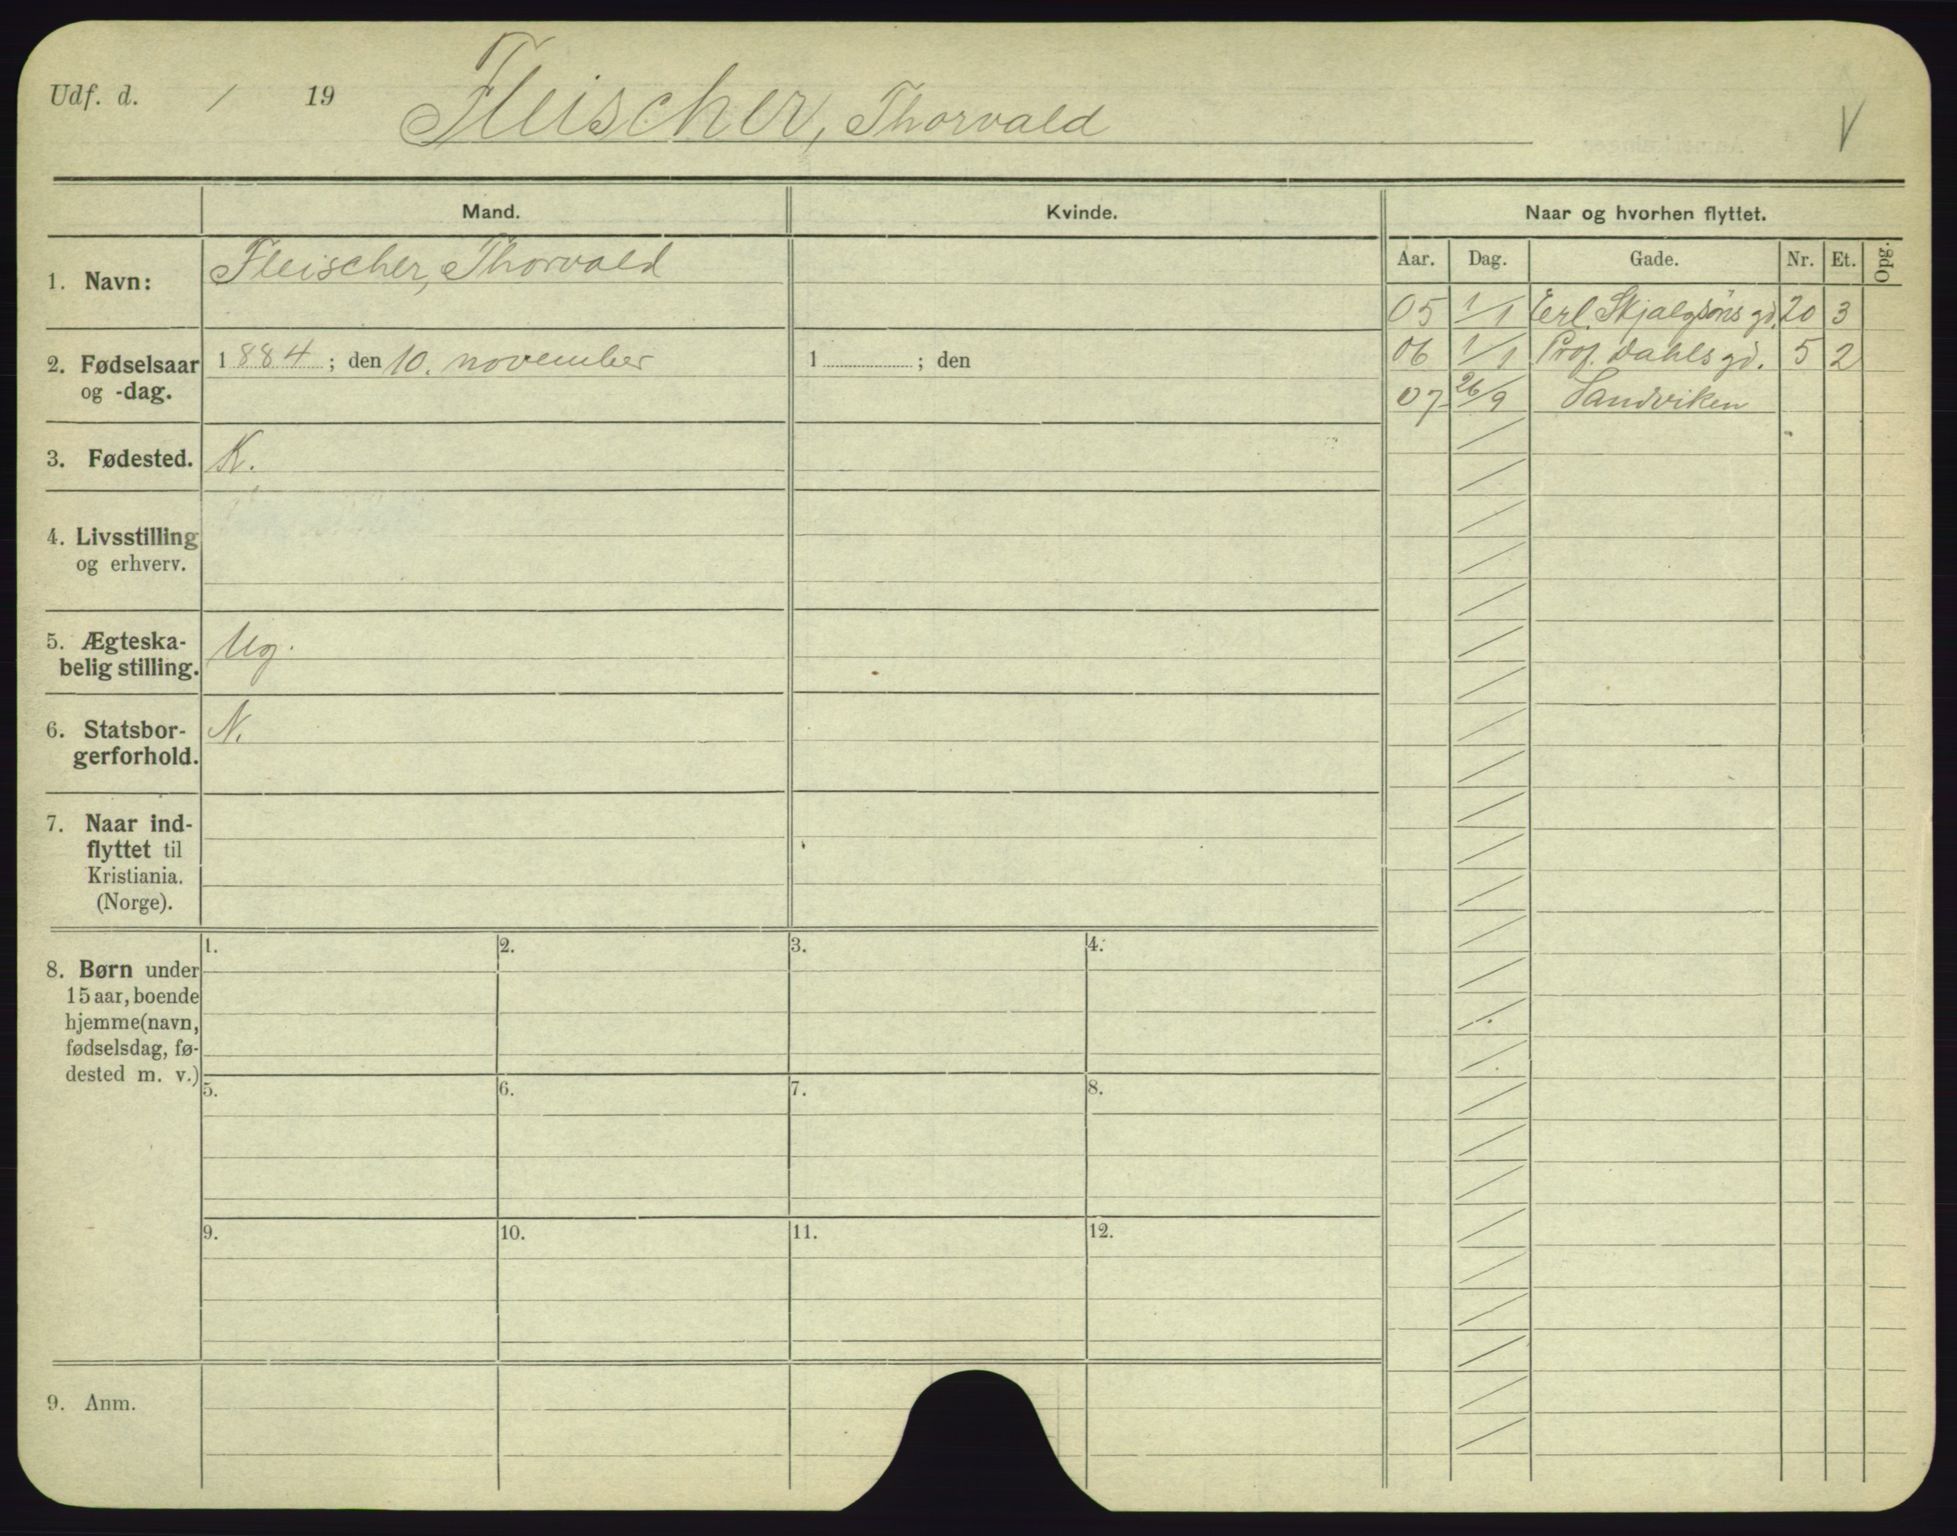 Udf. d. / 19 Fleischer, Thorvald V
Mand. Kvinde. Naar og hvorhen flyttet.
Aar. Dag. Gade. Nr. Et. Opg.
1. Navn: Fleischer, Thorvald
05 1/1 Erl. Skjalgsöns gd. 20 3
2. Fødselsaar 1884; den 10. november 1 ; den
og -dag.
06 1/1 Prof. Dahls gd. 5 2
07 26/9 Sandviken
3. Fødested. K.
4. Livsstilling
og erhverv.
5. Ægteska-
belig stilling. Ug.
6. Statsbor- N.
gerforhold.
7. Naar ind-
flyttet til
Kristiania.
(Norge).
1. 2. 3. 4.
8. Børn under
15 aar, boende
hjemme (navn,
fødselsdag, fø-
dested m. v.)
5. 6. 7. 8.
9. 10. 11. 12.
9. Anm.